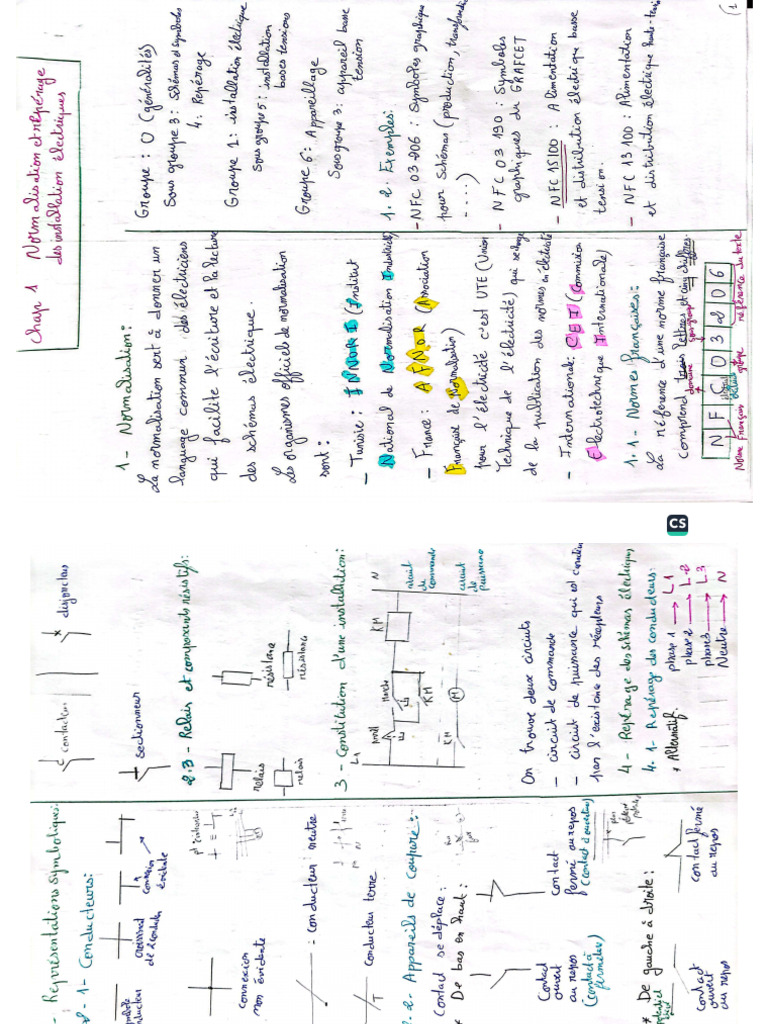 Chap 1 Normalisation et repérage
des installation électriques
1 - Normalisation :
La normalisation sert à donner un
language commun des électriciens
qui facilite l'écriture et la lecture
des schémas électrique.
Les organismes officiel de normalisation
sont :
- Tunisie : INNORI (Institut
National de Normalisation Industrielle)
- France : AFNOR (Association
Française de Normalisation)
pour l'électricité c'est UTE (Union
Technique de l'électricité) qui se charge
de la publication des normes en électricité
- International : CEI (Commission
Electrotechnique Internationale)
1.1 - Normes françaises :
La référence d'une norme française
comprend trois lettres et cinq chiffres.
domaine sous groupe
N F C 0 3 2 0 6
Norme Français groupe référence du texte
Groupe : 0 (généralités)
Sous groupe 3 : Schémas et symboles
4 : Repérage
Groupe 1 : installation électrique
Sous groupe 5 : installation
bases tensions
Groupe 6 : Appareillage
Sous groupe 3 : appareil basse
tension
1.2. Exemples :
- NFC 03 206 : Symboles graphique
pour schémas (production, transformation
....)
- NFC 03 190 : Symboles
graphiques du GRAFCET
- NFC 15100 : Alimentation
et distribution électrique basse
tension.
- NFC 13 100 : Alimentation
et distribution électrique haute tension
(1
CS
- Représentations symboliques :
2 - 1 - Conducteurs :
croisement
de 2 conduct
connexion
évidente
connexion
non évidente
: conducteur neutre
conducteur terre
2.2 - Appareils de coupure :
Contact se déplace :
* De bas en haut :
Contact
ouvert
au repos
(contact à
fermeture)
contact
fermé au repos
(contact d'ouverture)
* De gauche à droite :
contact
ouvert
au repos
contact fermé
au repos
contacteur
disjoncteur
sectionneur
2.3 - Relais et composants résistifs :
relais
résistance
relais
résistance
3 - Constitution d'une installation :
L1
N
Arrêt
Marche
KM
KM
circuit
de
commande
KM
M
circuit
de
puissance
On trouve deux circuits
- circuit de commande
- circuit de puissance qui est constitué
par l'existance des récepteurs
4 - Repérage des schémas électriques
4.1 - Repérage des conducteurs :
* Alternatif.
phase 1 → L1
phase 2 → L2
phase 3 → L3
Neutre → N